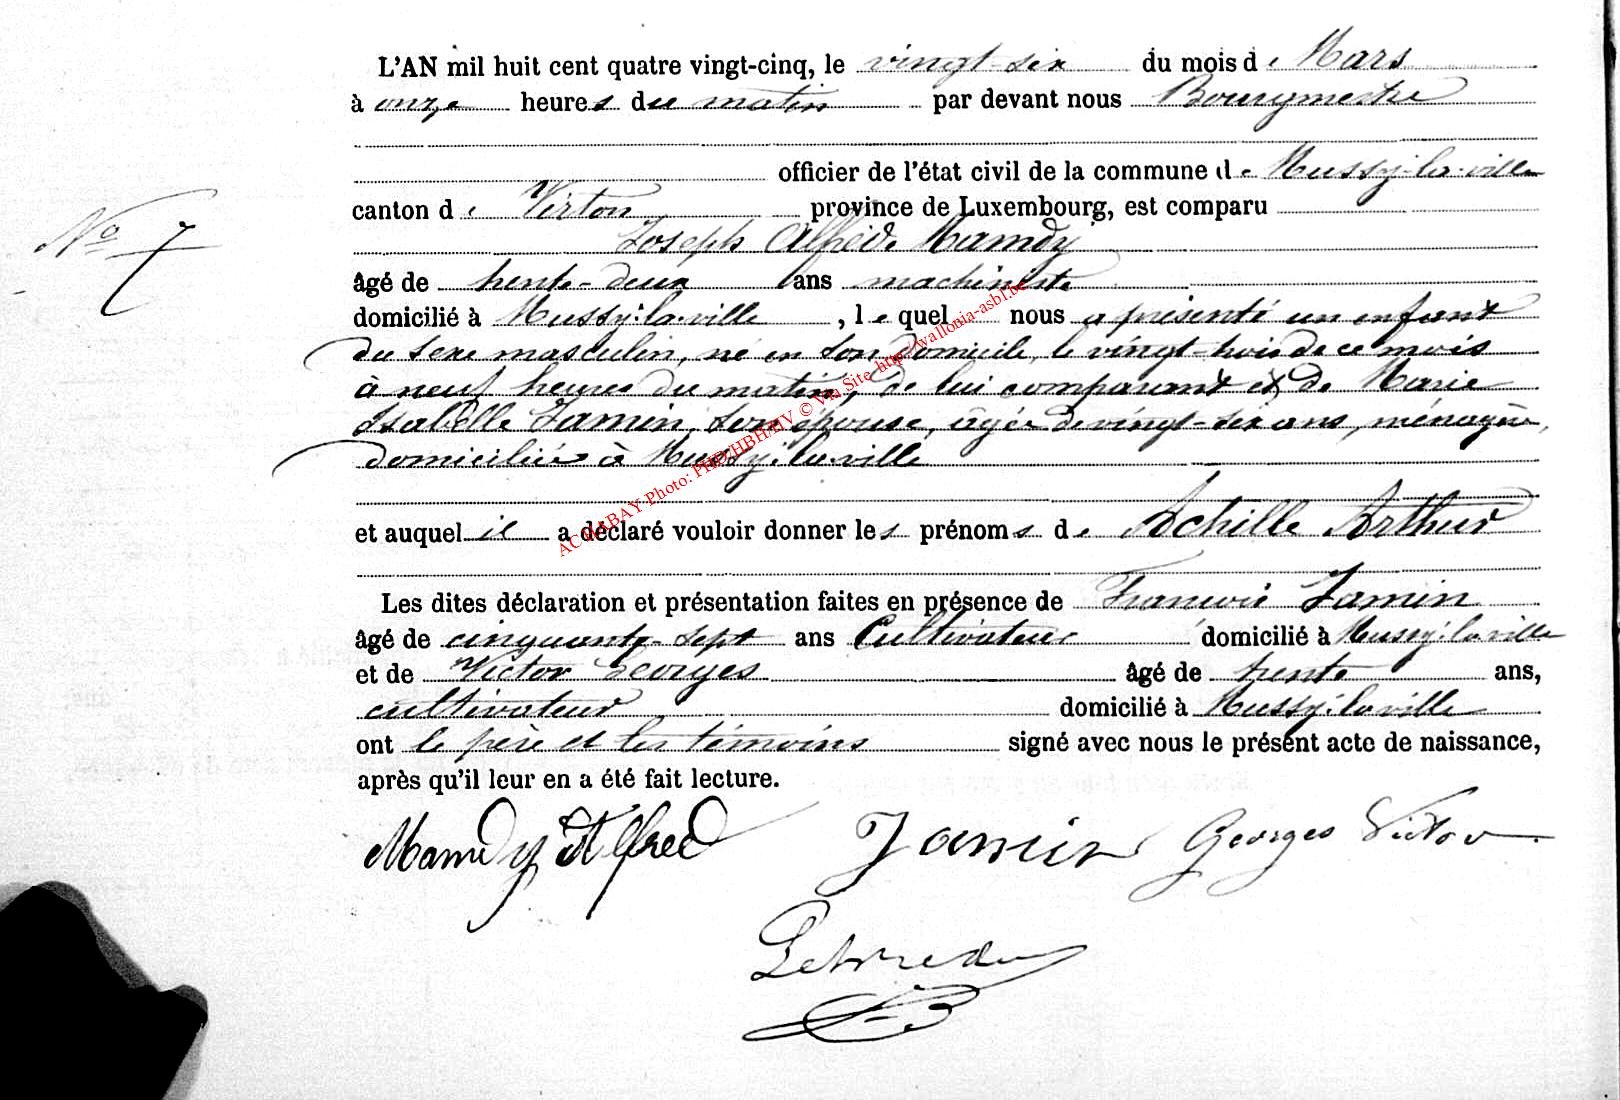 L'AN mil huit cent quatre vingt-cinq, le vingt-six du mois de Mars
à onze heures du matin par devant nous Bourgmestre
officier de l'état civil de la commune de Mussy-la-ville
canton de Virton province de Luxembourg, est comparu
N° 7
Joseph Alfred Mamdy
âgé de trente-deux ans machiniste
domicilié à Mussy-la-ville, lequel nous a présenté un enfant
du sexe masculin, né en son domicile, le vingt-trois de ce mois
à neuf heures du matin, de lui comparant et de Marie
Isabelle Jamin, son épouse, âgée de vingt-six ans, ménagère,
domiciliée à Mussy-la-ville
et auquel il a déclaré vouloir donner les prénoms de Achille Arthur
Les dites déclaration et présentation faites en présence de François Jamin
âgé de cinquante-sept ans Cultivateur domicilié à Mussy-la-ville
et de Victor Georges âgé de trente ans,
cultivateur domicilié à Mussy-la-ville
ont le père et les témoins signé avec nous le présent acte de naissance,
après qu'il leur en a été fait lecture.
Mamdy Alfred Jamin Georges Victor
AC HABAY Photo: PHD/HBH/HV © Via Site http://wallonia-asbl.be